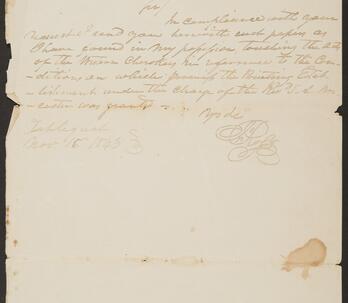 Sir
In compliance with your
request I send you herewith such papers as
I have found in my possession touching the act
of the Western Cherokees in reference to the Con-
ditions on which the Mission Estab
lishment under the charge of the Revd S. A. Wor-
cester was granted
Yrs &c
Tahlequah
Nov 15 1843